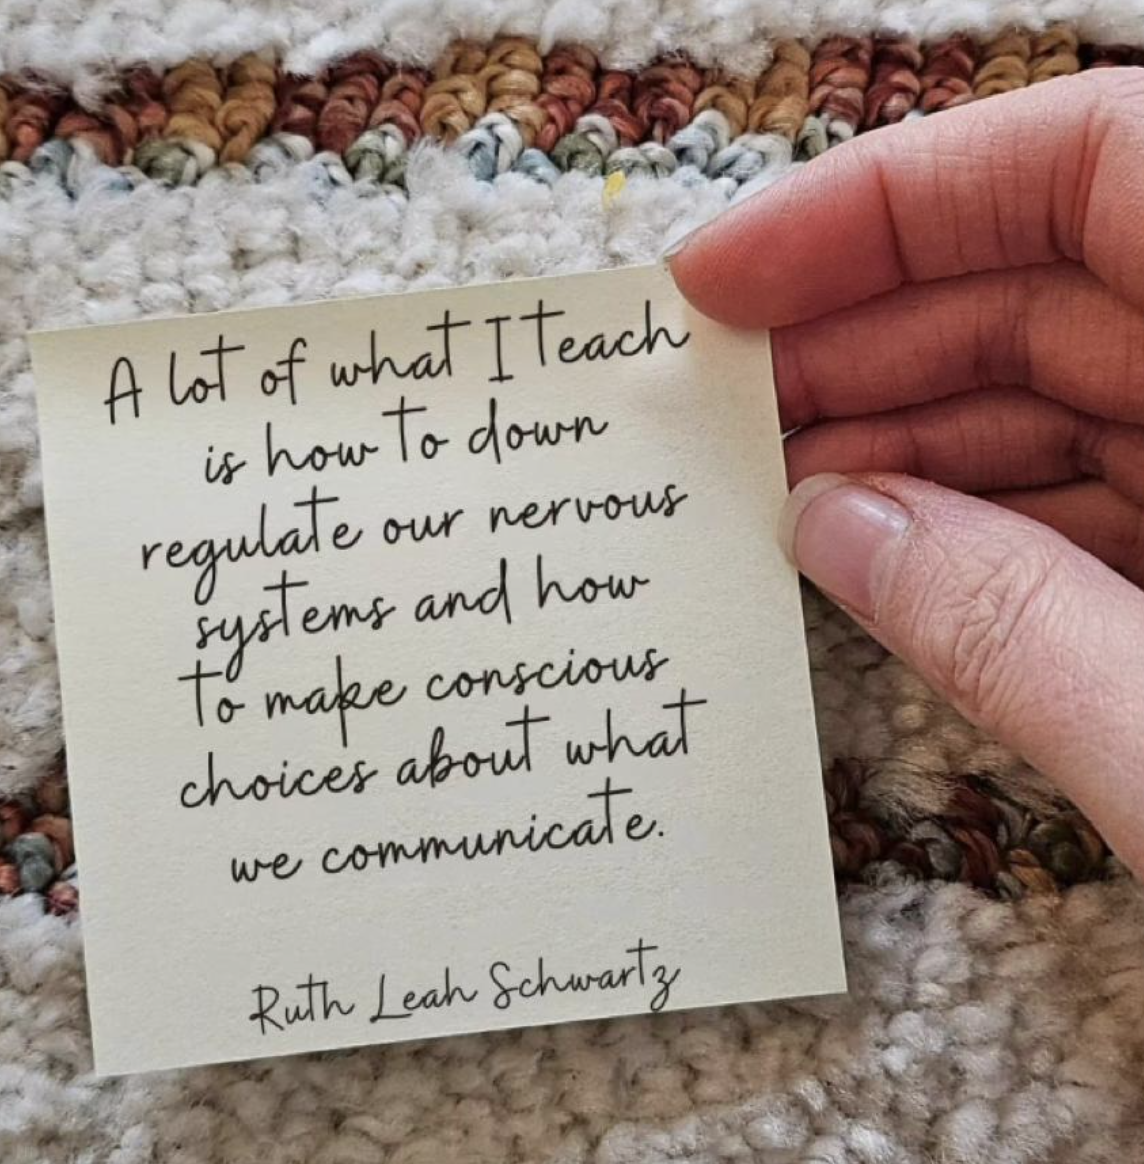 A lot of what I teach
is how to down
regulate our nervous
systems and how
to make conscious
choices about what
we communicate.
Ruth Leah Schwartz